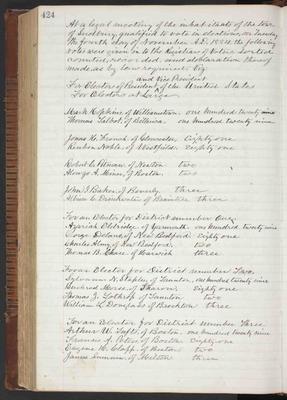 424
At a legal meeting of the inhabitants of the town
of Sudbury, qualified to vote in elections, on Tuesday
the fourth day of November A.D. 1884 the following
votes were given in to the Selectmen &c. were sorted,
counted, recorded, and declaration thereof
made as by law required viz
and Vice President
For Electors of President of the United States
For Electors at Large
Mark Hopkins, of Williamstown one hundred twenty nine
Thomas Talbot, of Billerica, one hundred twenty nine
Jonas H. French, of Gloucester, Eighty one
Reuben Noble, of Westfield, eighty one
Robert C. Pitman, of Newton two
Alonzo A. Miner, of Boston, two
John I. Baker, of Beverly three
of Braintree three
For an Elector for District number One
Azariah Eldridge of Yarmouth one hundred twenty nine
of New Bedford Eighty one
Charles of New Bedford, two
Thomas B. Chase, of Harwich three
For an Elector for District number Two,
Sylvanus N. Staples, of Taunton, one hundred twenty nine
Bushrod Morse, of Sharon, eighty one
Thomas J. Lothrop, of Taunton two
William L. Douglas of Brockton three
For an Elector for District number Three
Arthur W. Tufts, of Boston, one hundred twenty nine
Francis A. Peters, of Boston eighty one
Eugene H. Clapp, of Boston two
James of Boston three